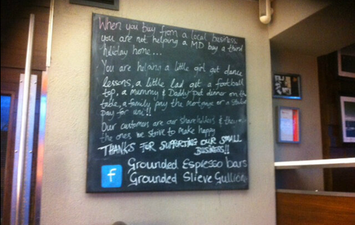 When you buy from a local business
you are not helping a M.D buy a third
holiday home...
You are helping a little girl get dance
lessons, a little lad get a football
top, a mummy & Daddy put dinner on the
table, a family pay the mortgage or a
Day for use!!
Our customers are our shareholders & the
the ones we strive to make happy
THANKS FOR SUPPORTING OUR SMALL
BUSINESS!!
f Grounded Espresso bars
Grounded Slieve Gullion